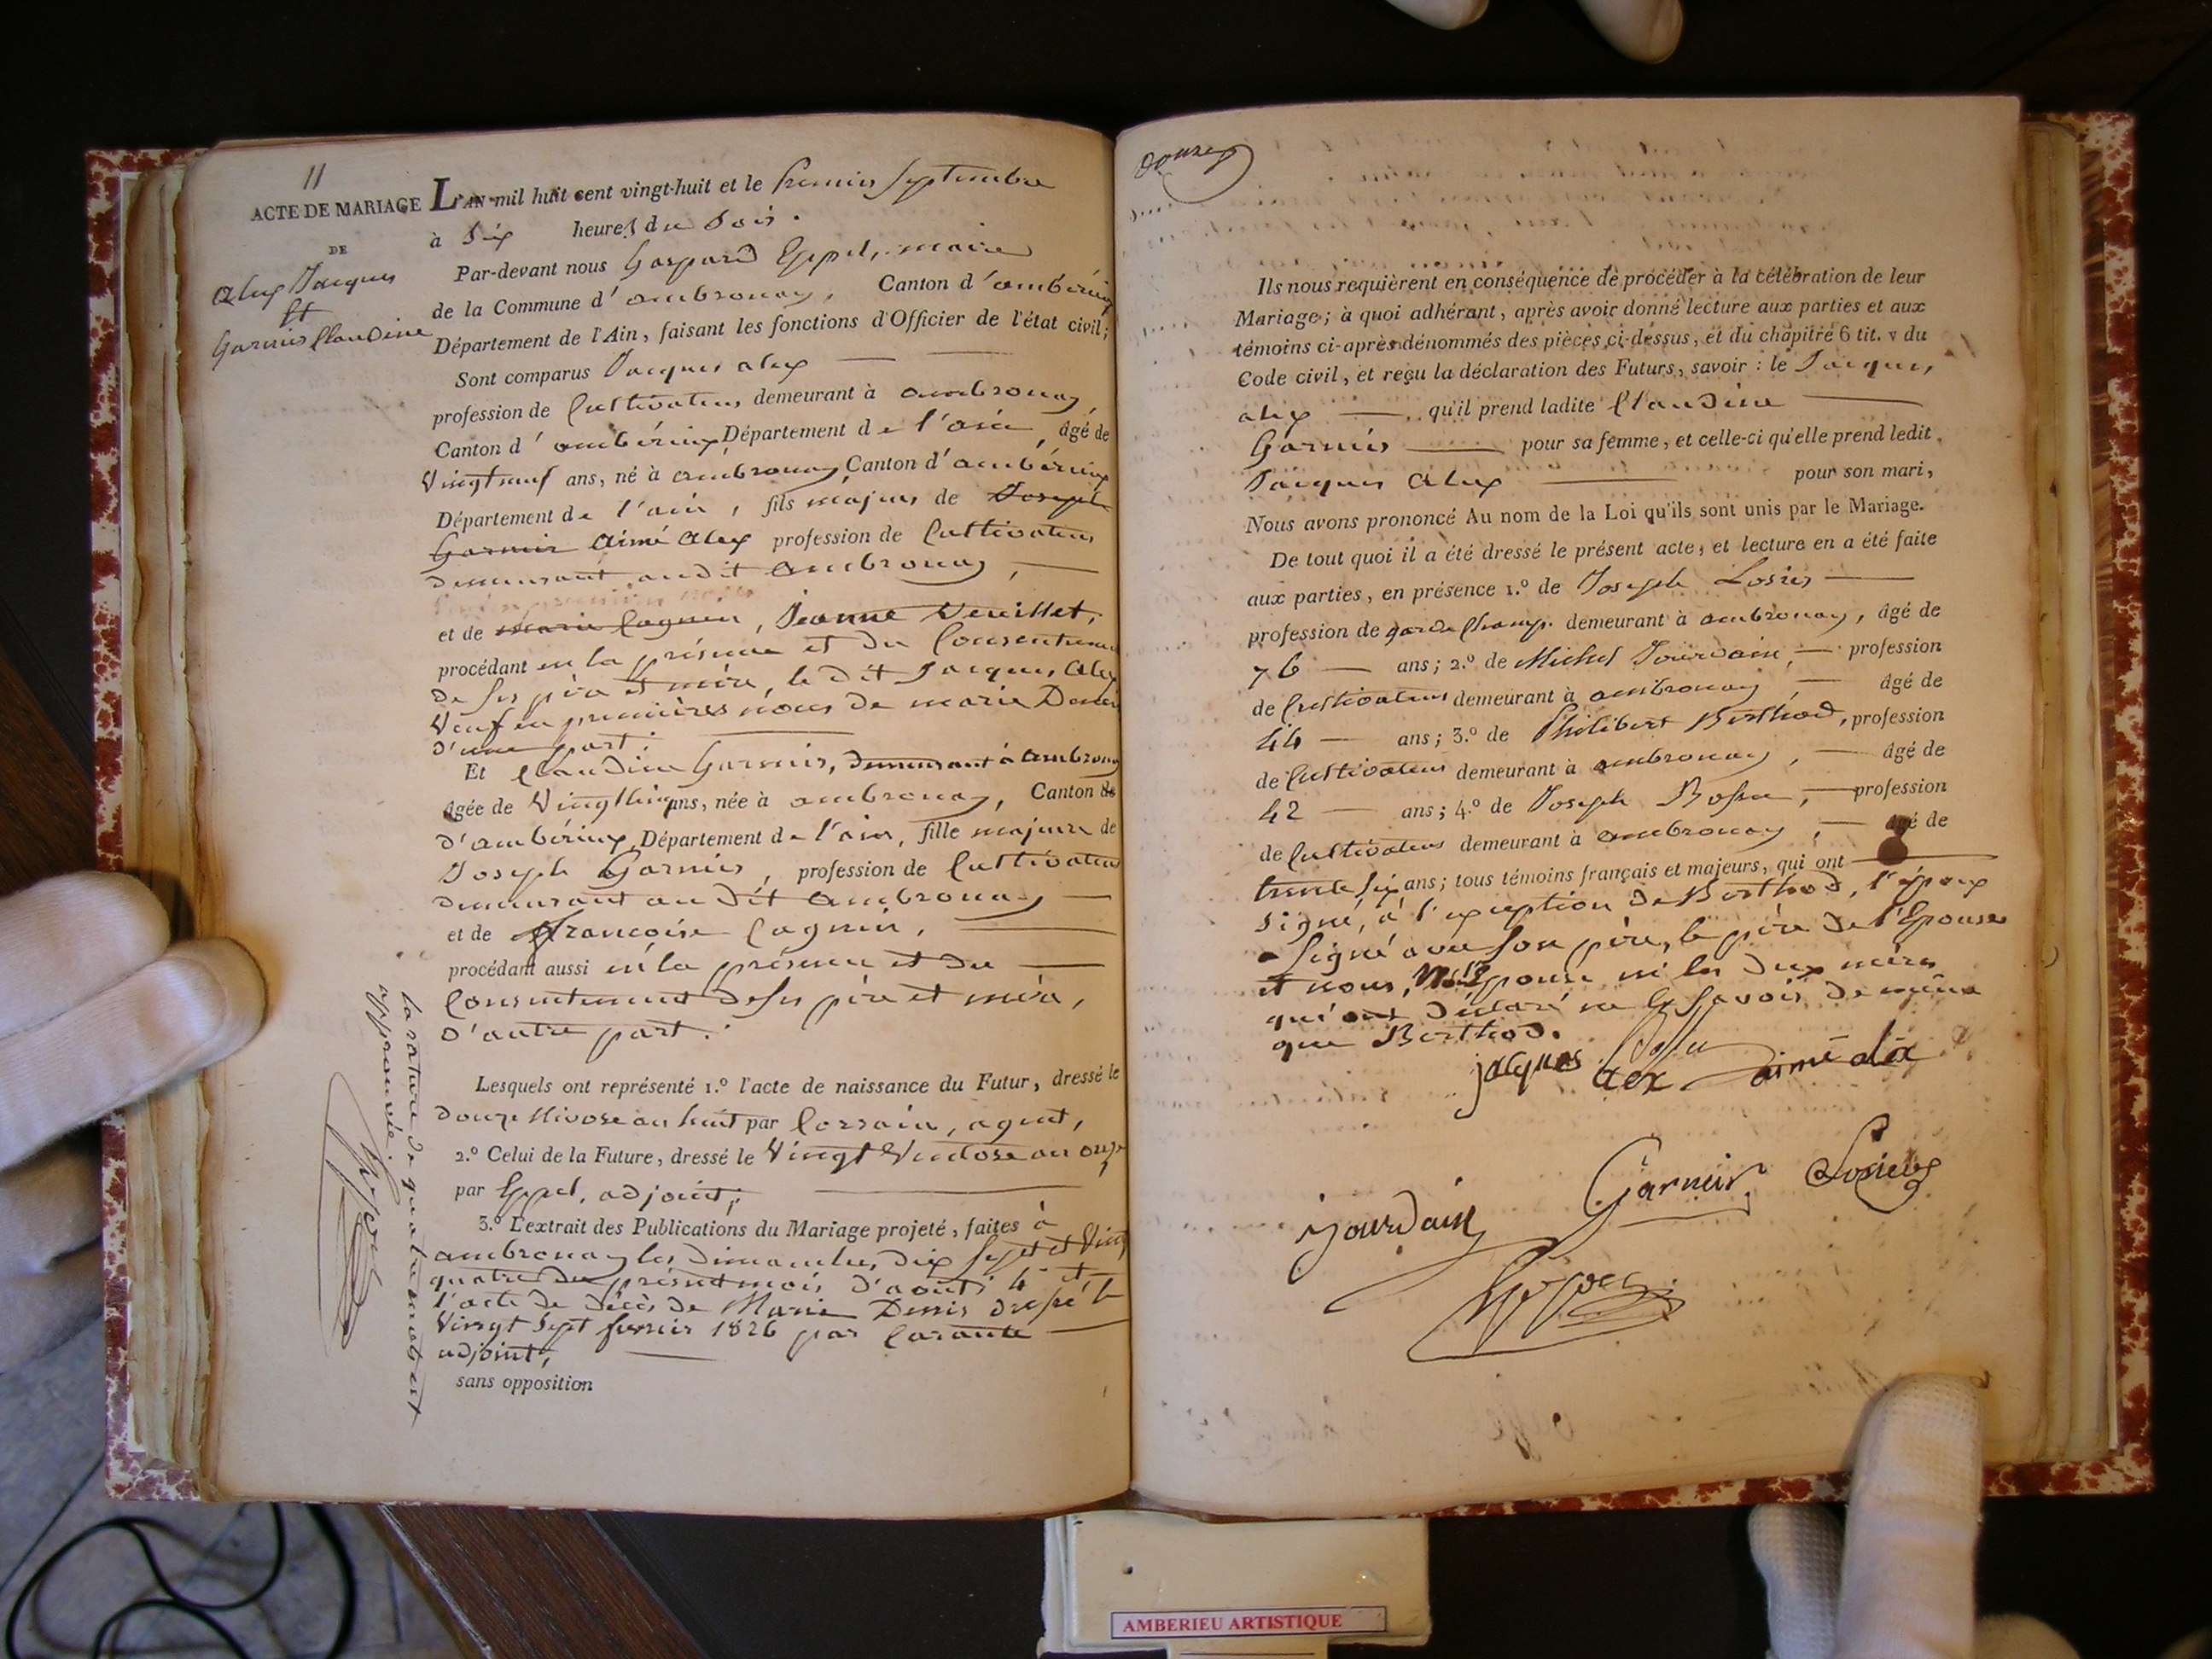 11
ACTE DE MARIAGE
DE
Alex Jacques
Et
Garnier Claudine
L'AN mil huit cent vingt-huit et le premier Septembre
à Six heures du Soir.
Par-devant nous Gaspard Eppel, maire
de la Commune d'ambronay, Canton d'ambérieux
Département de l'Ain, faisant les fonctions d'Officier de l'état civil;
Sont comparus Jacques alex
profession de Cultivateur demeurant à ambronay,
Canton d'ambérieux Département de l'ain, âgé de
Vingt neuf ans, né à ambronay Canton d'ambérieux
Département de l'ain, fils majeur de Joseph
Garnier Aimé Alex profession de Cultivateur
demeurant audit Ambronay,
et de marie Cagnin, Jeanne Veuillet,
procédant en la présence et du Consentement
de ses père et mère, le dit Jacques Alex
Veuf en premières noces de marie Denis
d'une part.
Et Claudine Garnier, demeurant à Ambronay
âgée de Vingt cinq ans, née à ambronay, Canton de
d'ambérieux, Département de l'ain, fille majeure de
Joseph Garnier, profession de Cultivateur
demeurant au dit Ambronay
et de françoise Cagnin,
procédant aussi en la présence et du
Consentement de ses père et mère,
D'autre part.
Lesquels ont représenté 1.º l'acte de naissance du Futur, dressé le
douze Nivose an huit par Corrain, agent,
2.º Celui de la Future, dressé le Vingt Ventose an onze
par Eppel, adjoint;
3.º L'extrait des Publications du Mariage projeté, faites à
ambronay les Dimanches dix Sept et Vingt
quatre du présent mois d'août; 4º et
l'acte de décès de Marie Denis dressé le
Vingt Sept fevrier 1826 par Carante
adjoint;
sans opposition
la rature de quatre mots est
approuvée.
Eppel
douze
Ils nous requièrent en conséquence de procéder à la célébration de leur
Mariage; à quoi adhérant, après avoir donné lecture aux parties et aux
témoins ci-après dénommés des pièces ci-dessus, et du chapitre 6 tit. v du
Code civil, et reçu la déclaration des Futurs, savoir : le Jacques
alex qu'il prend ladite Claudine
Garnier pour sa femme, et celle-ci qu'elle prend ledit
Jacques Alex pour son mari,
Nous avons prononcé Au nom de la Loi qu'ils sont unis par le Mariage.
De tout quoi il a été dressé le présent acte, et lecture en a été faite
aux parties, en présence 1.º de Joseph Losier
profession de garde Champ. demeurant à ambronay, âgé de
76 ans; 2.º de Michel Jourdain, profession
de Cultivateur demeurant à ambronay, âgé de
44 ans; 3.º de Philibert Berthod, profession
de Cultivateur demeurant à ambronay, âgé de
42 ans; 4.º de Joseph Bossu, profession
de Cultivateur demeurant à ambronay, âgé de
trente Six ans; tous témoins français et majeurs, qui ont
signé, à l'exception de Berthod, l'époux
a Signé avec son père, le père de l'Epouse
et nous, Non l'Epouse ni les deux mères
qui ont déclaré ne le Savoir de même
que Berthod.
Bossu
jacques alex aimé alex
Jourdain Garnier Losier
Eppel
AMBERIEU ARTISTIQUE